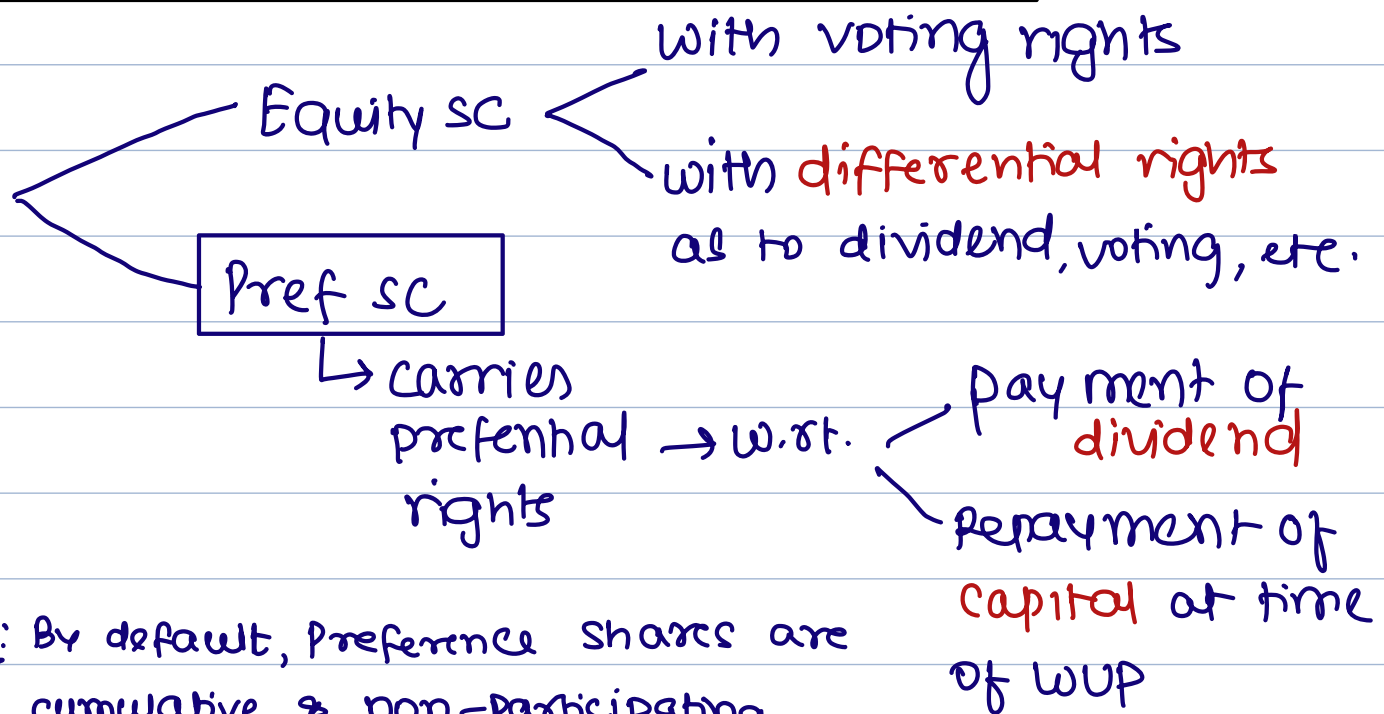 with voting rights
Equity SC
with differential rights
as to dividend, voting, etc.
Pref SC
carries
prefential → w.r.t.
rights
payment of
dividend
Repayment of
capital at time
of WUP
: By default, Preference shares are
cumulative & non-participating